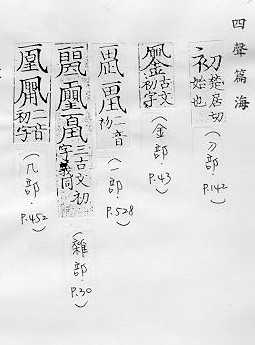 四聲篇海
初 楚居切 始也 (刀部. P.142)
古文初字 (金部. P.43)
二音初 (一部. P.528)
三古文初字義同 (雜部. P.30)
二音初字 (几部. P.452)